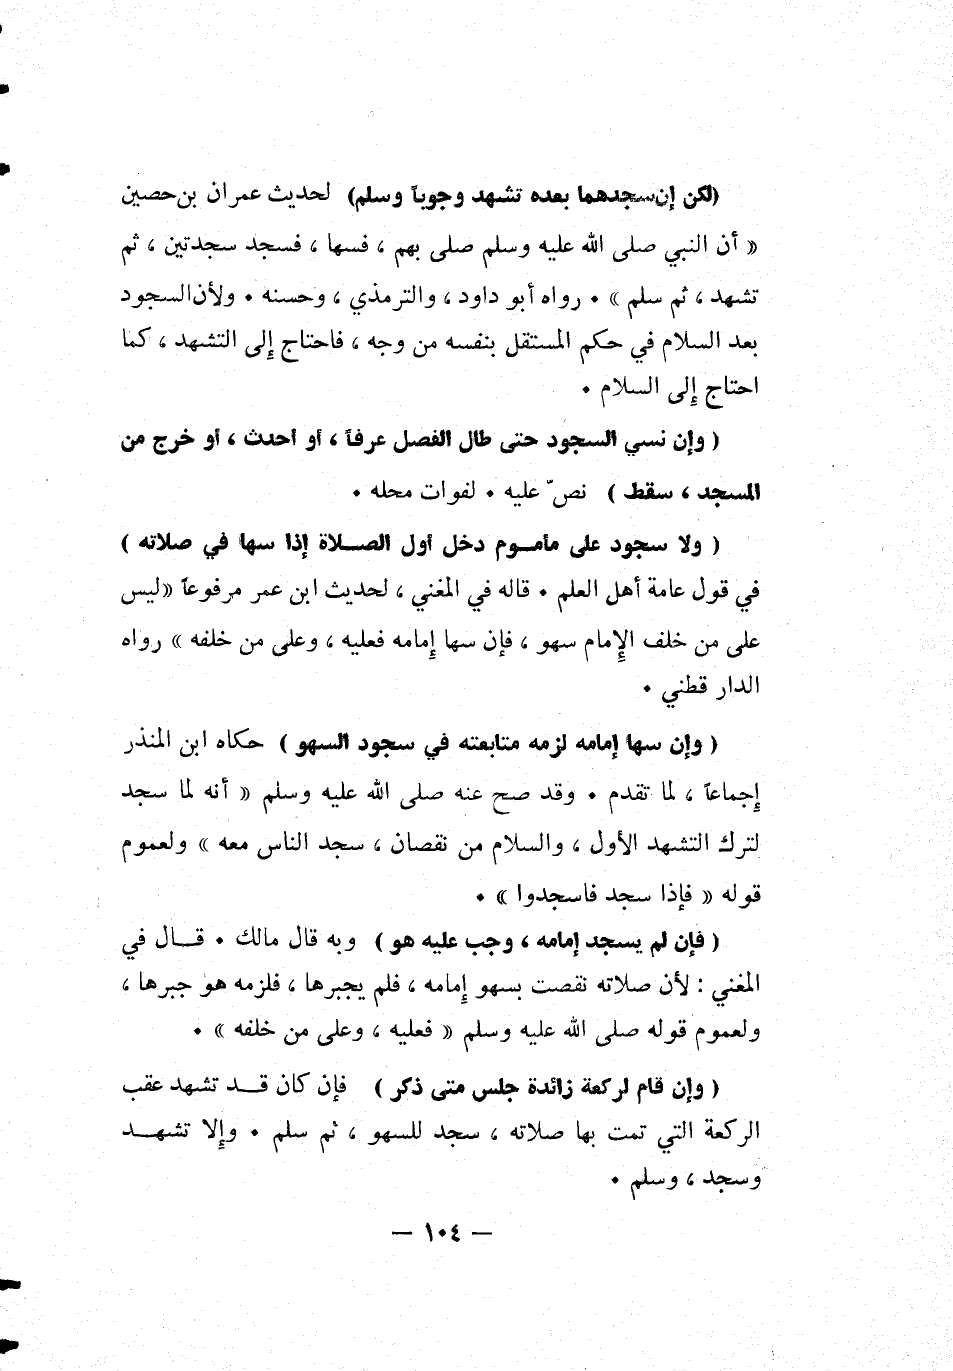 (لكن إن سجدهما بعده تشهد وجوباً وسلم) لحديث عمران بن حصين
« أن النبي صلى الله عليه وسلم صلى بهم ، فسها ، فسجد سجدتين ، ثم
تشهد ، ثم سلم » . رواه أبو داود ، والترمذي ، وحسنه . ولأن السجود
بعد السلام في حكم المستقل بنفسه من وجه ، فاحتاج إلى التشهد ، كما
احتاج إلى السلام .
( وإن نسي السجود حتى طال الفصل عرفاً ، أو أحدث ، أو خرج من
المسجد ، سقط ) نصّ عليه . لفوات محله .
( ولا سجود على مأموم دخل أول الصلاة إذا سها في صلاته )
في قول عامة أهل العلم . قاله في المغني ، لحديث ابن عمر مرفوعاً «ليس
على من خلف الإمام سهو ، فإن سها إمامه فعليه ، وعلى من خلفه » رواه
الدار قطني .
( وإن سها إمامه لزمه متابعته في سجود السهو ) حكاه ابن المنذر
إجماعاً ، لما تقدم . وقد صح عنه صلى الله عليه وسلم « أنه لما سجد
لترك التشهد الأول ، والسلام من نقصان ، سجد الناس معه » ولعموم
قوله « فإذا سجد فاسجدوا » .
( فإن لم يسجد إمامه ، وجب عليه هو ) وبه قال مالك . قال في
المغني : لأن صلاته نقصت بسهو إمامه ، فلم يجبرها ، فلزمه هو جبرها ،
ولعموم قوله صلى الله عليه وسلم « فعليه ، وعلى من خلفه » .
( وإن قام لركعة زائدة جلس متى ذكر ) فإن كان قد تشهد عقب
الركعة التي تمت بها صلاته ، سجد للسهو ، ثم سلم . وإلا تشهد
وسجد ، وسلم .
— ١٠٤ —